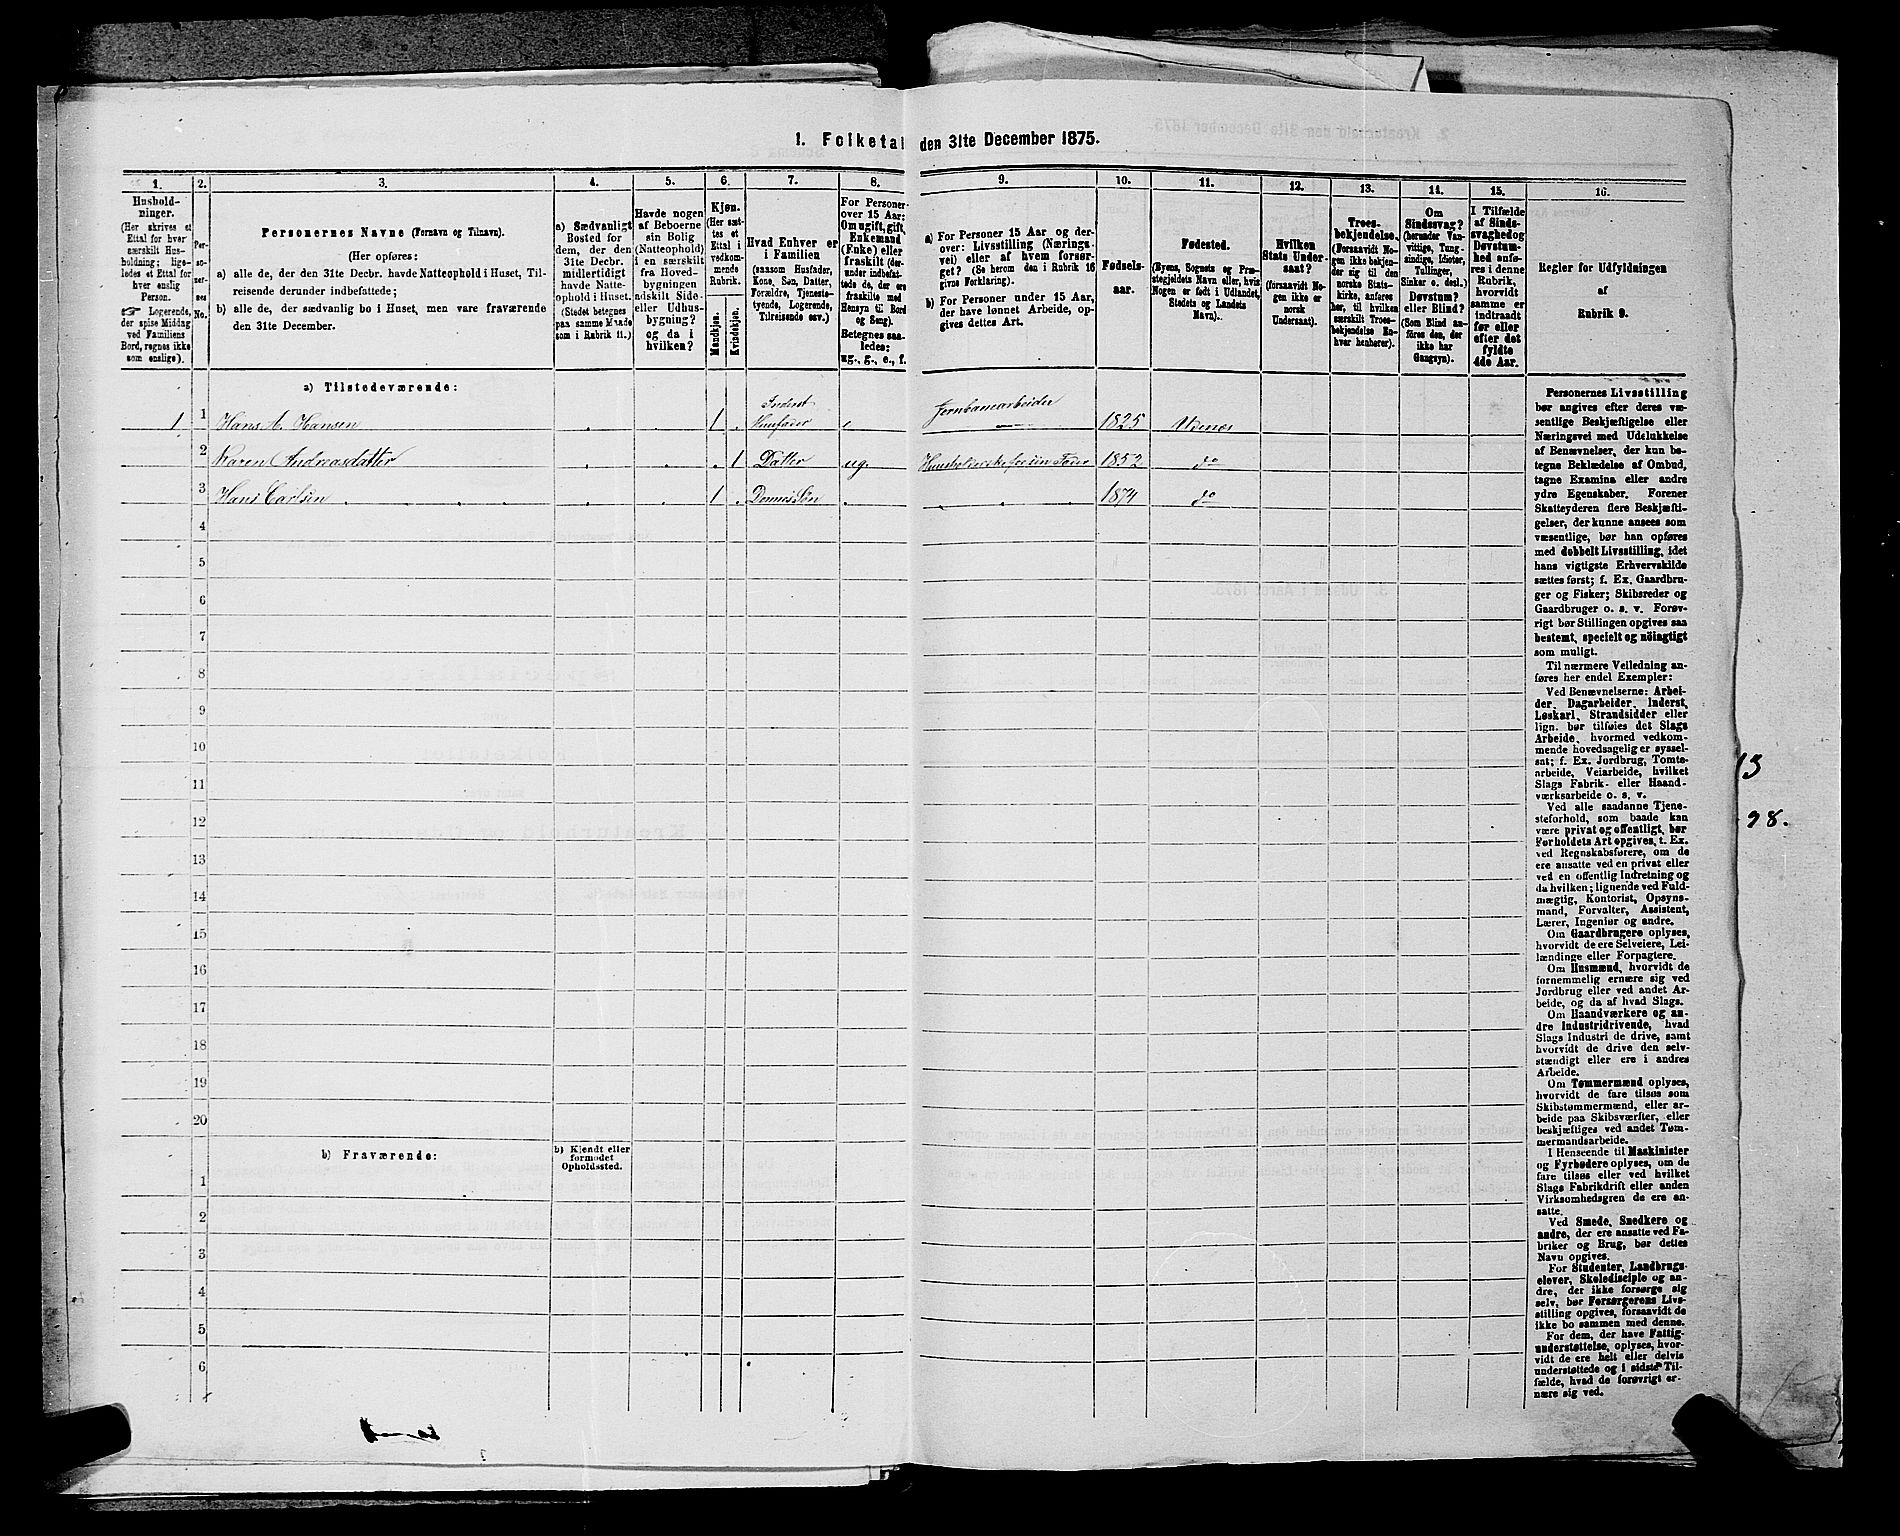 1. Folketal den 31te December 1875.
1.
2.
3.
4.
5.
6.
7.
8.
9.
10.
11.
12.
13.
14.
15.
16.
Hushold-
ninger.
(Her skrives et
Ettal for hver
særskilt Hus-
holdning; lige-
ledes et Ettal for
hver enslig
Person.
☞ Logerende,
der spise Middag
ved Familiens
Bord, regnes ikke
som enslige).
Per-
so-
ner-
nes
No.
Personernes Navne (Fornavn og Tilnavn).
(Her opføres:
a) alle de, der den 31te Decbr. havde Natteophold i Huset, Til-
reisende derunder indbefattede;
b) alle de, der sædvanlig bo i Huset, men vare fraværende
den 31te December.
a) Sædvanligt
Bosted for
dem, der den
31te Decbr.
midlertidigt
havde Natte-
ophold i Huset.
(Stedet betegnes
paa samme Maade
som i Rubrik 11.)
Havde nogen
af Beboerne
sin Bolig
(Natteophold)
i en særskilt
fra Hoved-
bygningen
adskilt Side-
eller Udhus-
bygning?
og da i
hvilken?
Kjøn.
(Her sæt-
tes et
Ettal i
vedkom-
mende
Rubrik.
Mandkjøn.
Kvindekjøn.
Hvad Enhver er
i Familien
(saasom Husfader,
Kone, Søn, Datter,
Forældre, Tjeneste-
tyende, Logerende,
Tilreisende osv.)
For Personer
over 15 Aar:
Om ugift, gift,
Enkemand
(Enke) eller
fraskilt (der-
under indbefat-
tede de, der ere
fraskilte med
Hensyn til Bord
og Seng).
Betegnes saa-
ledes:
ug., g., e., f.
a) For Personer 15 Aar og der-
over: Livsstilling (Nærings-
vei) eller af hvem forsør-
get? (Se herom den i Rubrik 16
givne Forklaring).
b) For Personer under 15 Aar,
der have lønnet Arbeide, op-
gives dettes Art.
Fødsels-
aar.
Fødested.
(Byens, Sognets og Præ-
stegjeldets Navn eller, hvis
Nogen er født i Udlandet,
Stedets og Landets
Navn).
Hvilken
Stats Under-
saat?
(forsaavidt No-
gen ikke er
norsk
Undersaat).
Troes-
bekjendelse.
(Forsaavidt No-
gen ikke bekjen-
der sig til den
norske Stats-
kirke, anføres
her, til hvilken
særskilt Troes-
bekjendelse En-
hver henhører).
Om
Sindssvag?
(herunder Van-
vittige, Tung-
sindige, Idioter,
Tullinger,
Sinker o. desl.)
Døvstum?
eller Blind?
(Som Blind an-
føres den, der
ikke har
Gangsyn).
I Tilfælde
af Sinds-
svaghed og
Døvstum-
hed anfø-
res i denne
Rubrik,
hvorvidt
samme er
indtraadt
før eller
efter det
fyldte
4de Aar.
Regler for Udfyldningen
af
Rubrik 9.
a) Tilstedeværende:
1 1 Hans A. Hansen 1 Inderst Husfader e Jernbanearbeider 1825 Udenæs
2 Karen Andreasdatter 1 Datter ug. Husholderske for sin Fader 1852 do
3 Hans Carlsen 1 Dennes Søn 1874 do
4
5
6
7
8
9
10
11
12
13
14
15
16
17
18
19
20
b) Fraværende:
b) Kjendt eller
formodet
Opholdssted.
1
2
3
4
5
6
Personernes Livsstilling
bør angives efter deres væ-
sentlige Beskjæftigelse eller
Næringsvei med Udelukkelse
af Benævnelser, der kun be-
tegne Beklædelse af Ombud,
tagne Examina eller andre
ydre Egenskaber. Forener
Skatteyderen flere Beskjæfti-
gelser, der kunne ansees som
væsentlige, bør han opføres
med dobbelt Livsstilling, idet
hans vigtigste Erhvervskilde
sættes først; f. Ex. Gaardbru-
ger og Fisker; Skibsreder og
Gaardbruger o. s. v. Forøv-
rigt bør Stillingen opgives saa
bestemt, specielt og nöiagtigt
som muligt.
Til nærmere Veiledning an-
føres her endel Exempler:
Ved Benævnelserne: Arbei-
der, Dagarbeider, Inderst,
Løskarl, Strandsidder eller
lign. bør tilføies det Slags
Arbeide, hvormed vedkom-
mende hovedsagelig er syssel-
sat; f. Ex. Jordbrug, Tomte-
arbeide, Veiarbeide, hvilket
Slags Fabrik- eller Haand-
værksarbeide o. s. v.
Ved alle saadanne Tjene-
steforhold, som baade kan
være privat og offentligt, bør
Forholdets Art opgives, t. Ex.
ved Regnskabsførere, om de
ere ansatte ved en privat eller
ved en offentlig Indretning og
da hvilken; lignende ved Fuld-
mægtig, Kontorist, Opsyns-
mand, Forvalter, Assistent,
Lærer, Ingeniør og andre.
Om Gaardbrugere oplyses,
hvorvidt de ere Selveiere, Lei-
lændinge eller Forpagtere.
Om Husmænd, hvorvidt de
fornemmelig ernære sig ved
Jordbrug eller ved andet Ar-
beide, og da af hvad Slags.
Om Haandværkere og an-
dre Industridrivende, hvad
Slags Industri de drive, samt
hvorvidt de drive den selv-
stændigt eller ere i andres
Arbeide.
Om Tømmermænd oplyses,
hvorvidt de fare tilsøs som
Skibstømmermænd, eller ar-
beide paa Skibsværfter, eller
beskjæftiges ved andet Tøm-
mermandsarbeide.
I Henseende til Maskinister
og Fyrbødere oplyses, om de
fare tilsøs eller ved hvilket
Slags Fabrikdrift eller anden
Virksomhedsgren de ere an-
satte.
Ved Smede, Snedkere og
andre, der ere ansatte ved Fa-
briker og Brug, bør dettes
Navn opgives.
For Studenter, Landbrugs-
elever, Skoledisciple og an-
dre, der ikke forsørge sig
selv, bør Forsørgerens Livs-
stilling opgives, forsaavidt de
ikke bo sammen med denne.
For dem, der have Fattig-
understøttelse, oplyses, hvor-
vidt de ere helt eller delvis
understøttede og i sidste Til-
fælde, hvad de forøvrigt er-
nære sig ved.
13
98.